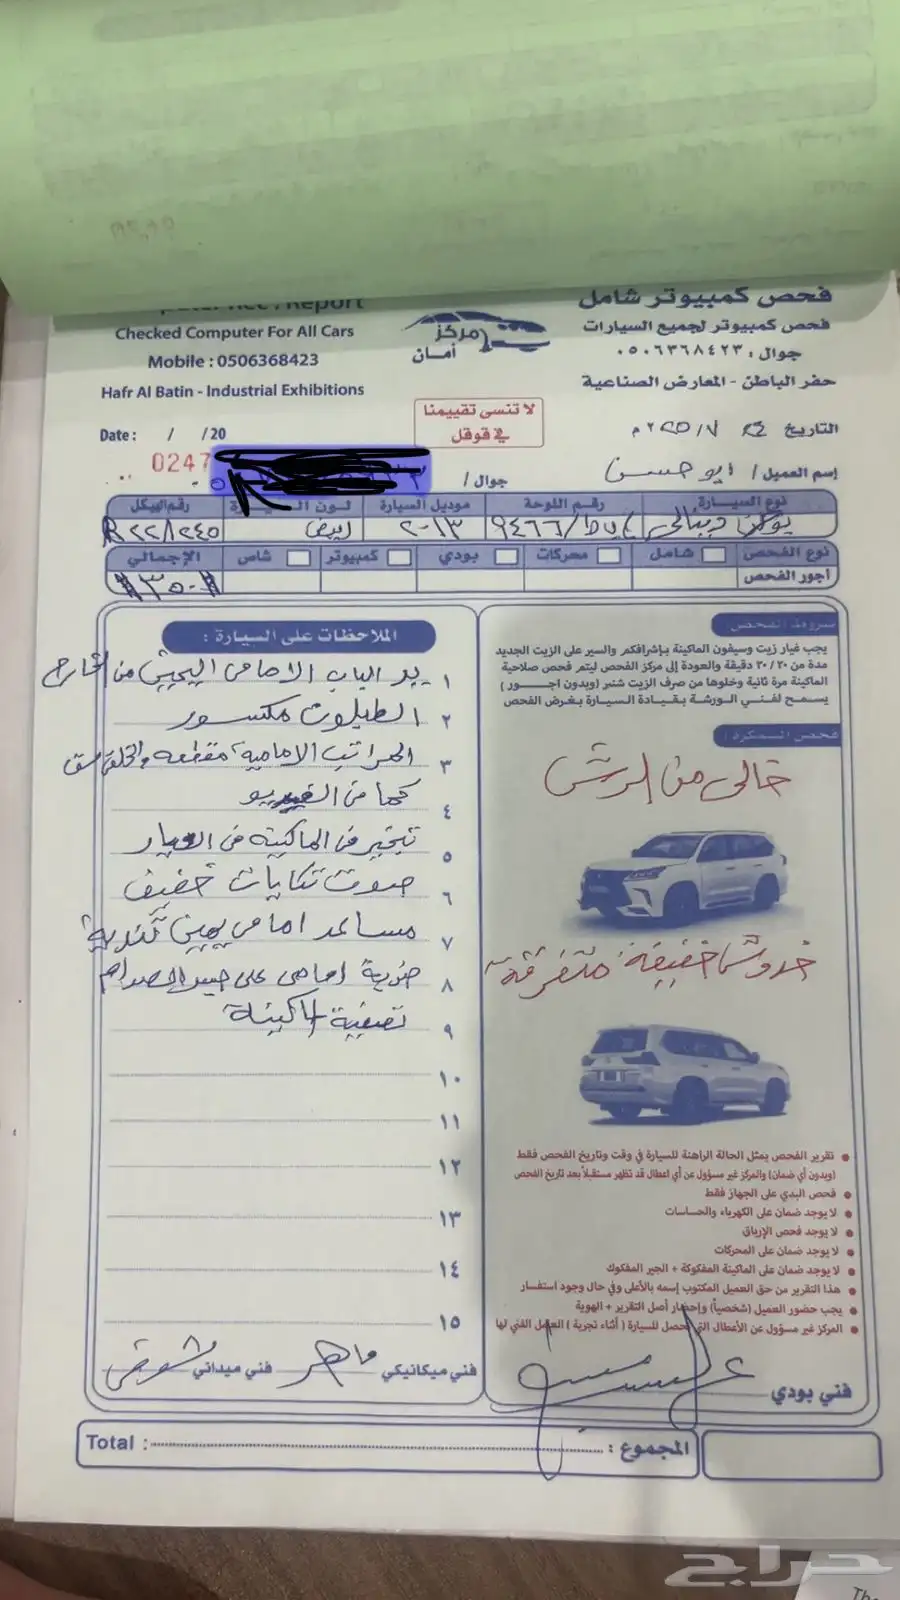 فحص كمبيوتر شامل
فحص كمبيوتر لجميع السيارات
جوال : ٠٥٠٦٣٦٨٤٢٣
حفر الباطن - المعارض الصناعية
مركز أمان
Report
Checked Computer For All Cars
Mobile : 0506368423
Hafr Al Batin - Industrial Exhibitions
لا تنسى تقييمنا
في قوقل
Date : / /20
التاريخ ٢٤ / ٧ / ٢٠٢٥ م
0247
إسم العميل / ابو حسن
جوال /
نوع السيارة رقم اللوحة موديل السيارة لون السيارة رقم الهيكل
يوكن دينالي ٩٤٦٦ ٢٠١٣ ابيض R٢٢٨٢٤٥
نوع الفحص شامل محركات بودي كمبيوتر شاص الإجمالي
أجور الفحص ٣٥٠
شروط الفحص
يجب غيار زيت وسيفون الماكينة بإشرافكم والسير على الزيت الجديد
مدة من ٢٠/٣٠ دقيقة والعودة إلى مركز الفحص ليتم فحص صلاحية
الماكينة مرة ثانية وخلوها من صرف الزيت شنبر (وبدون اجـــور)
يسمح لفني الورشة بقيادة السيارة بغرض الفحص
فحص السمكرة :
خالي من الرش
خدوش خفيفة متفرقة
تقرير الفحص يمثل الحالة الراهنة للسيارة في وقت وتاريخ الفحص فقط
(وبدون أي ضمان) والمركز غير مسؤول عن أي اعطال قد تظهر مستقبلاً بعد تاريخ الفحص
فحص البدي على الجهاز فقط
لا يوجد ضمان على الكهرباء والحساسات
لا يوجد فحص الإرباق
لا يوجد ضمان على المحركات
لا يوجد ضمان على الماكينة المفكوكة + الجير المفكوك
هذا التقرير من حق العميل المكتوب إسمه بالأعلى وفي حال وجود استفسار
يجب حضور العميل (شخصياً) وإحضار أصل التقرير + الهوية
المركز غير مسؤول عن الأعطال التي تحصل للسيارة ( أثناء تجربة ) العمل الفني لها
فني بودي
الملاحظات على السيارة :
١ يد الباب الامامي اليمين من الخارج
٢ الطبلون مكسور
٣ المراتب الامامية مقطعه والخلفي
٤ كما من الفيديو
٥ تبخير في الماكينة من العيار
٦ صوت تكايات خفيف
٧ مساعد امامي يمين
٨ ضربة امامي على جسر الصدام
٩ تصفية الماكينة
١٠
١١
١٢
١٣
١٤
١٥
فني ميكانيكي ماهر فني ميداني
المجموع : Total :
حراج